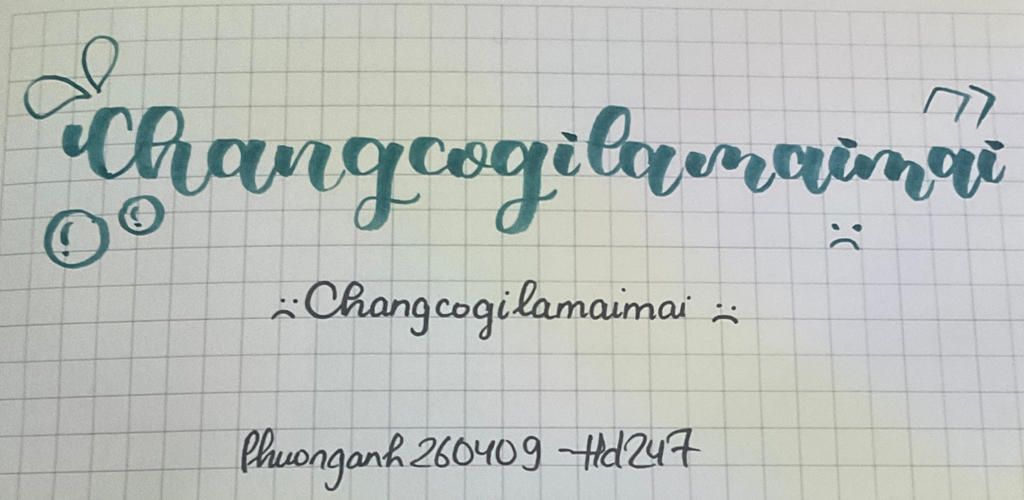 Changcogilamaimai
:(
:( Changcogilamaimai :(
Phuonganh260409 - Hd247